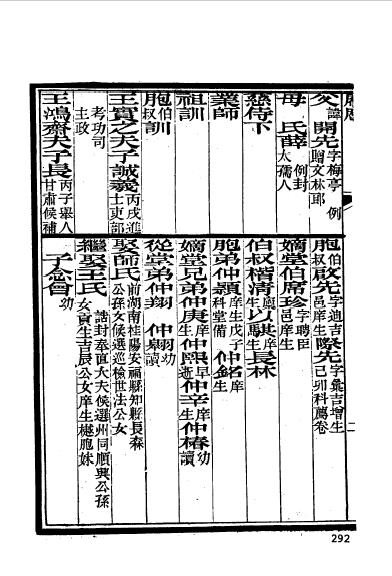 父諱開先字梅亭例贈文林郎
母氏薛例封太孺人
慈侍下
業師
祖訓
胞伯叔訓
王實之夫子誠羲丙戌進士吏部
考功司主政
王鴻齋夫子長丙子舉人甘肅候補
胞伯叔啟先字迪吉邑庠生際先字彙吉增生己卯科薦卷
嫡堂伯席珍字聘臣邑庠生
伯叔楷清廩生以騏庠生長林
胞弟仲顥庠生戊子科堂備仲銘庠生
嫡堂兄弟仲庚庠生仲熙早逝仲辛庠生仲椿幼讀
從堂弟仲翔 仲翱幼讀
娶師氏前湖南桂陽安福縣知縣長森公孫女候選巡檢世法公女
繼娶王氏誥封奉直大夫候選州同順興公孫女貢生吉辰公女庠生樾胞妹
子念曾幼
二
292